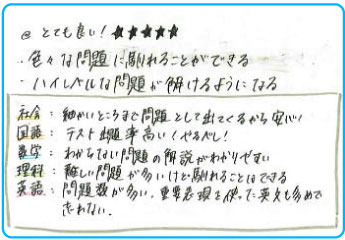 @ とても良い! ★★★★★
・色々な問題に馴れることができる
・ハイレベルな問題が解けるようになる
社会: 細かいところまで問題として出てくるから安心!
国語: テスト出題率高い!やるべし!
数学: わからない問題の解説がわかりやすい
理科: 難しい問題が多いけど馴れることはできる
英語: 問題数が多い。重要表現を使った英文も多めで
忘れない。